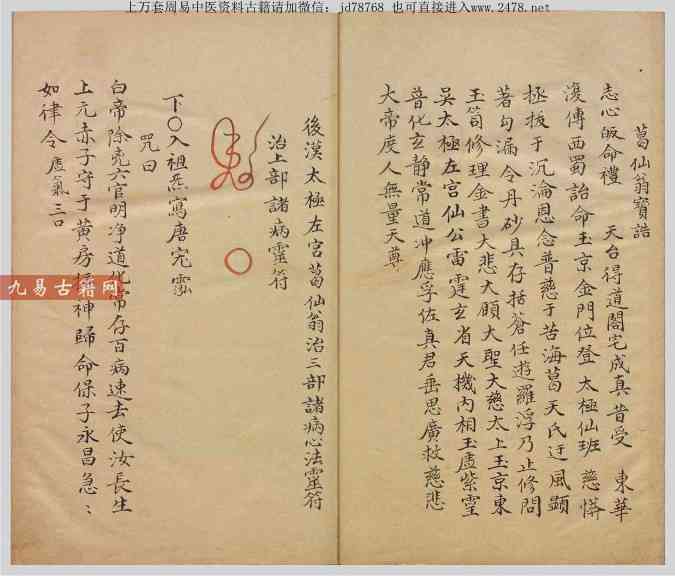 上万套周易中医资料古籍请加微信：jd78768 也可直接进入www.2478.net
葛仙翁寶誥
志心皈命禮 天台得道閣宅成真昔受 東華
復傳西蜀詔命玉京金門位登太極仙班 慈憐
拯拔于沉淪恩念普慈于苦海葛天氏迂風顯
著勾漏令丹砂具存括蒼任遊羅浮乃止修問
玉笥修理金書大悲大願大聖大慈太上玉京東
吳太極左宮仙公雷霆玄省天機內相玉虛紫靈
普化玄靜常道冲應孚佐真君垂恩廣救慈悲
大帝度人無量天尊
後漢太極左宮葛仙翁治三部諸病心法靈符
治上部諸病靈符
下〇入祖炁寫唐宄
咒曰
白帝除兇六官明净道化常存百病速去使汝長生
上元赤子守于黄房 神歸命保子永昌急〻
如律令 虛氣三口
九易古籍网